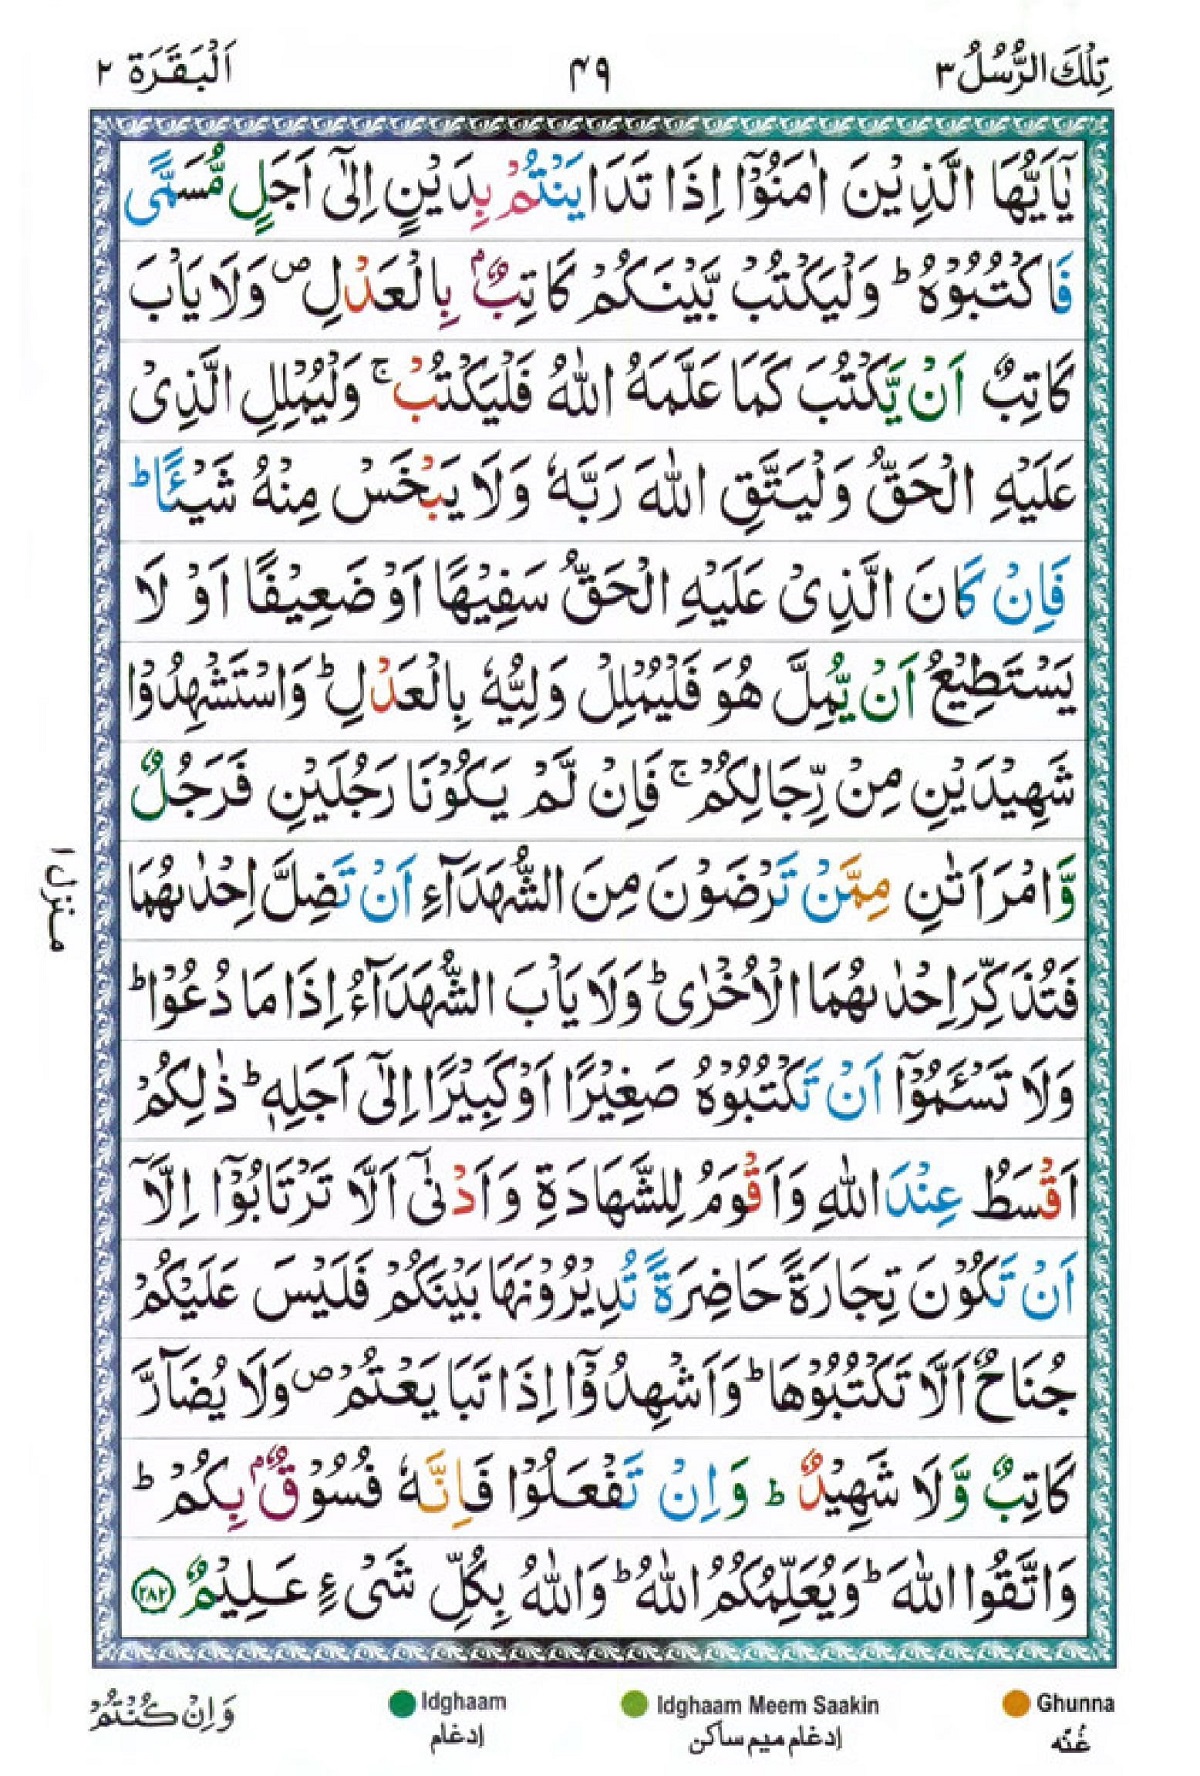 تِلْكَ الرُّسُلُ ٣
٤٩
اَلْبَقَرَة ٢
يٰۤاَيُّهَا الَّذِيْنَ اٰمَنُوْۤا اِذَا تَدَايَنْتُمْ بِدَيْنٍ اِلٰۤى اَجَلٍ مُّسَمًّى
فَاكْتُبُوْهُ ؕ وَلْيَكْتُبْ بَّيْنَكُمْ كَاتِبٌۢ بِالْعَدْلِ ۪ وَلَا يَاْبَ
كَاتِبٌ اَنْ يَّكْتُبَ كَمَا عَلَّمَهُ اللّٰهُ فَلْيَكْتُبْ ۚ وَلْيُمْلِلِ الَّذِىْ
عَلَيْهِ الْحَقُّ وَلْيَتَّقِ اللّٰهَ رَبَّهٗ وَلَا يَبْخَسْ مِنْهُ شَيْـًٔا ؕ
فَاِنْ كَانَ الَّذِىْ عَلَيْهِ الْحَقُّ سَفِيْهًا اَوْ ضَعِيْفًا اَوْ لَا
يَسْتَطِيْعُ اَنْ يُّمِلَّ هُوَ فَلْيُمْلِلْ وَلِيُّهٗ بِالْعَدْلِ ؕ وَاسْتَشْهِدُوْا
شَهِيْدَيْنِ مِنْ رِّجَالِكُمْ ۚ فَاِنْ لَّمْ يَكُوْنَا رَجُلَيْنِ فَرَجُلٌ
وَّامْرَاَتٰنِ مِمَّنْ تَرْضَوْنَ مِنَ الشُّهَدَآءِ اَنْ تَضِلَّ اِحْدٰٮهُمَا
فَتُذَكِّرَ اِحْدٰٮهُمَا الْاُخْرٰى ؕ وَلَا يَاْبَ الشُّهَدَآءُ اِذَا مَا دُعُوْا ؕ
وَلَا تَسْـَٔمُوْۤا اَنْ تَكْتُبُوْهُ صَغِيْرًا اَوْ كَبِيْرًا اِلٰۤى اَجَلِهٖ ؕ ذٰلِكُمْ
اَقْسَطُ عِنْدَ اللّٰهِ وَاَقْوَمُ لِلشَّهَادَةِ وَاَدْنٰۤى اَلَّا تَرْتَابُوْۤا اِلَّاۤ
اَنْ تَكُوْنَ تِجَارَةً حَاضِرَةً تُدِيْرُوْنَهَا بَيْنَكُمْ فَلَيْسَ عَلَيْكُمْ
جُنَاحٌ اَلَّا تَكْتُبُوْهَا ؕ وَاَشْهِدُوْۤا اِذَا تَبَايَعْتُمْ ۪ وَلَا يُضَآرَّ
كَاتِبٌ وَّلَا شَهِيْدٌ ؕ وَاِنْ تَفْعَلُوْا فَاِنَّهٗ فُسُوْقٌۢ بِكُمْ ؕ
وَاتَّقُوا اللّٰهَ ؕ وَيُعَلِّمُكُمُ اللّٰهُ ؕ وَاللّٰهُ بِكُلِّ شَىْءٍ عَلِيْمٌ ﴿٢٨٢﴾
منزل ١
وَاِنْ كُنْتُمْ
Idghaam
ادغام
Idghaam Meem Saakin
ادغام میم ساکن
Ghunna
غُنّه